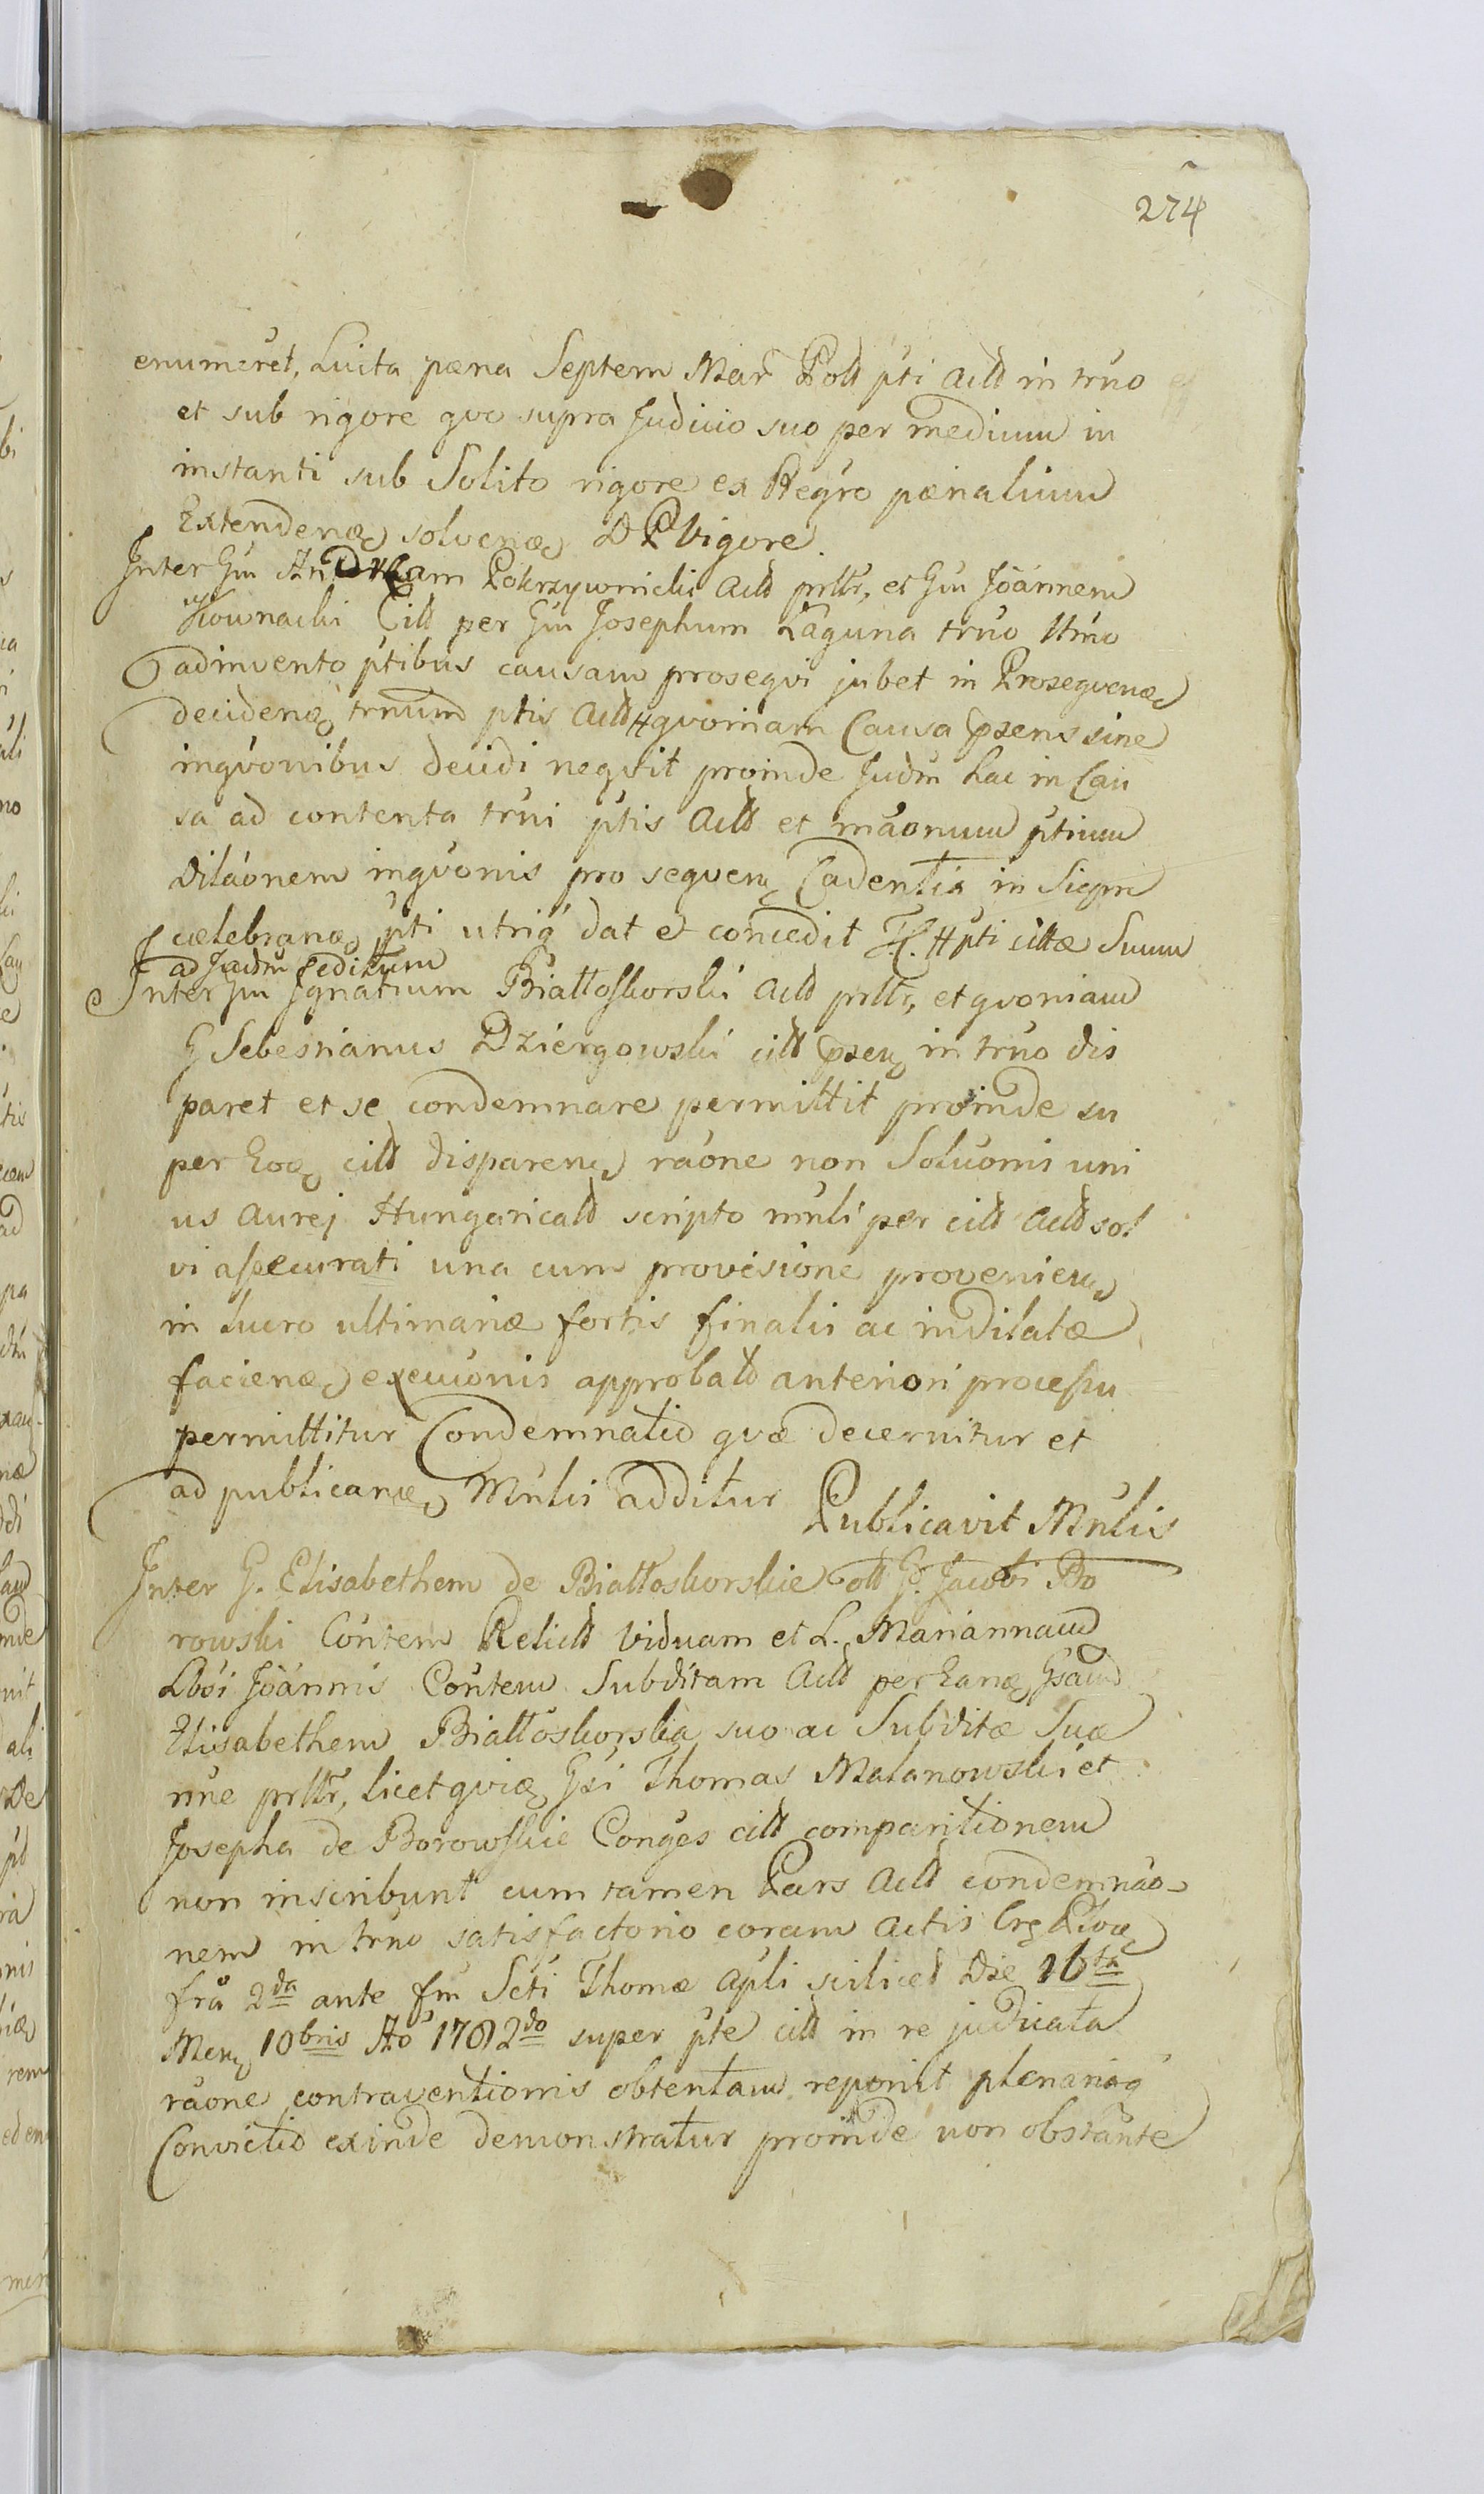 274
enumeret, Luita pæna Septem Mar Poll pti Actt in trno
et sub rigore quo supra Judicio suo per medium in
instanti sub Solito rigore ex Regro pænalium
Extendenæ solvenæ D P Vigore.
Inter Gm Andream Pokrzywnicki Actt prltr, et Gm Joannem
Kownacki Citt per Gm Josephum Łaguna trno ltmo
adinvento ptibus causam prosequi jubet in Prosequenæ
decidenæ trnum ptis Actt # quoniam Causa præns sine
inqvonibus decidi nequit proinde Judm hac in Cau
sa ad contenta trni ptis Actt et maonum ptium
Dilaonem inqvonis pro sequen Cadentia in Siepm
cælebranæ pti utriq dat et concedit # pti cittæ Suum
ad Judm Reditum
Inter Gm Ignatium Białłoskorski Actt prltr, et quoniam
G Sebestianus Dziergowski citt præn in trno dis
paret et se condemnare permittit proinde su
per Eoæ citt disparen raone non Soluonis uni
us Aurej Hungaricalt scripto mnli per citt Actt sol
vi assecurati una cum provisione provenien
in lucro ultimariæ sortis finalis ac indilatæ
facienæ execuonis approbatt anteriori processu
permittitur Condemnatio quæ decernitur et
ad publicanæ Mnlis additur Publicavit Mnlis
Inter G. Elisabethem de Białłoskorskie olt G. Jacobi Bo
rowski Contem Relictt Viduam et L. Mariannam
Lboi Joannis Contem Subditam Actt per Eanæ Gsam
Elisabethem Białłoskorska suo ac Subditæ Suæ
nne prltr, licet quiæ Gsi Thomas Malanowski et
Josepha de Borowskie Conges citt comparitionem
non inscribunt cum tamen Pars Actt condemnao-
nem in trno satisfactorio coram Actis
fra 2da ante fm Scti Thomæ Apli scilicet Die 16ta
Men 10bris Ao 1762do super pte citt in re judicata
raone contraventionis obtentam reponit plenariaq
Convictio exinde demonstratur proinde non obstante